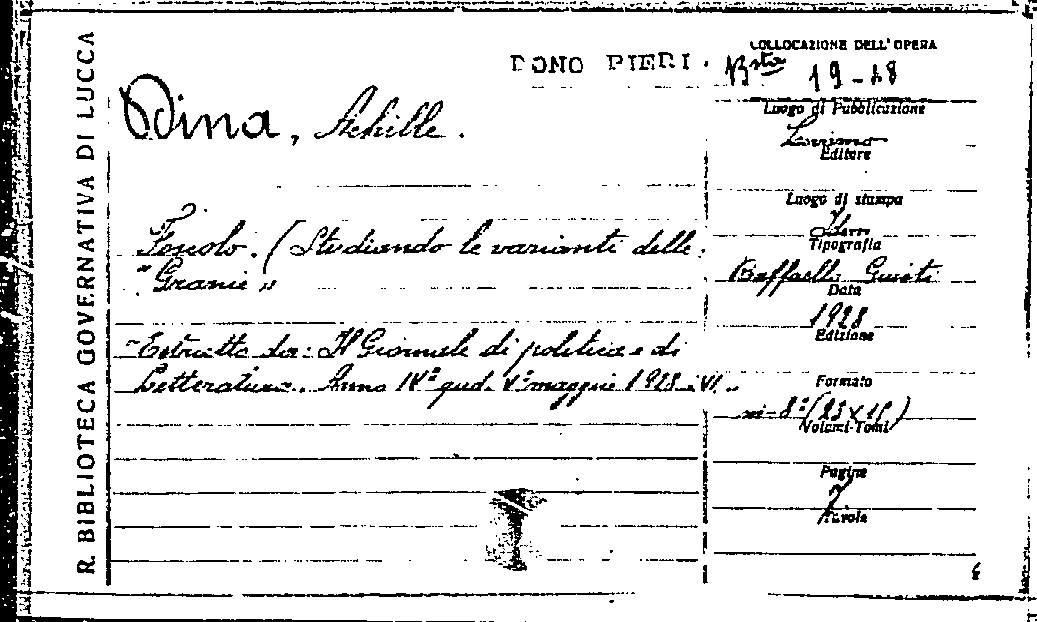 R. BIBLIOTECA GOVERNATIVA DI LUCCA
DONO PIERI.
COLLOCAZIONE DELL'OPERA
Bsta 19-28
Dina, Achille.
Foscolo. (Studiando le varianti delle
"Grazie"
"Estratto da: Il Giornale di politica e di
Letteratura. Anno IVº quad. Vº maggio 1928. VI.
Luogo di Pubblicazione
Livorno
Editore
Luogo di stampa
Tipografia
Raffaello Giusti
Data
1928
Edizione
Formato
in-8º (25x
Volumi-Tomi
Pagine
7
Tavole